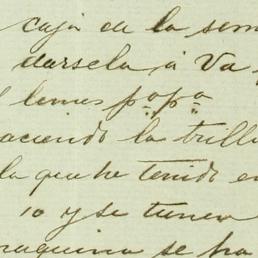 caja de la sem
darsela á Va
lemes p.a p.a
aciendo la trilla
la que he tenido en
10 y se tienen
maquina se ha